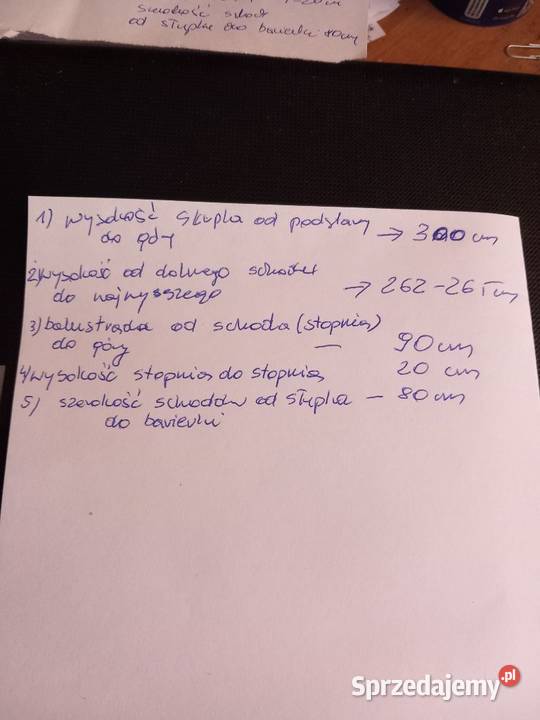 szerokość schod
od słupka do barierki 80cm
1) wysokość słupka od podstawy
do góry → 300 cm
2) wysokość od dolnego schodka
do najwyższego → 262-265cm
3) balustrada od schoda (stopnia)
do góry — 90cm
4) wysokość stopnia do stopnia 20 cm
5) szerokość schodów od słupka — 80cm
do barierki
Sprzedajemy.pl